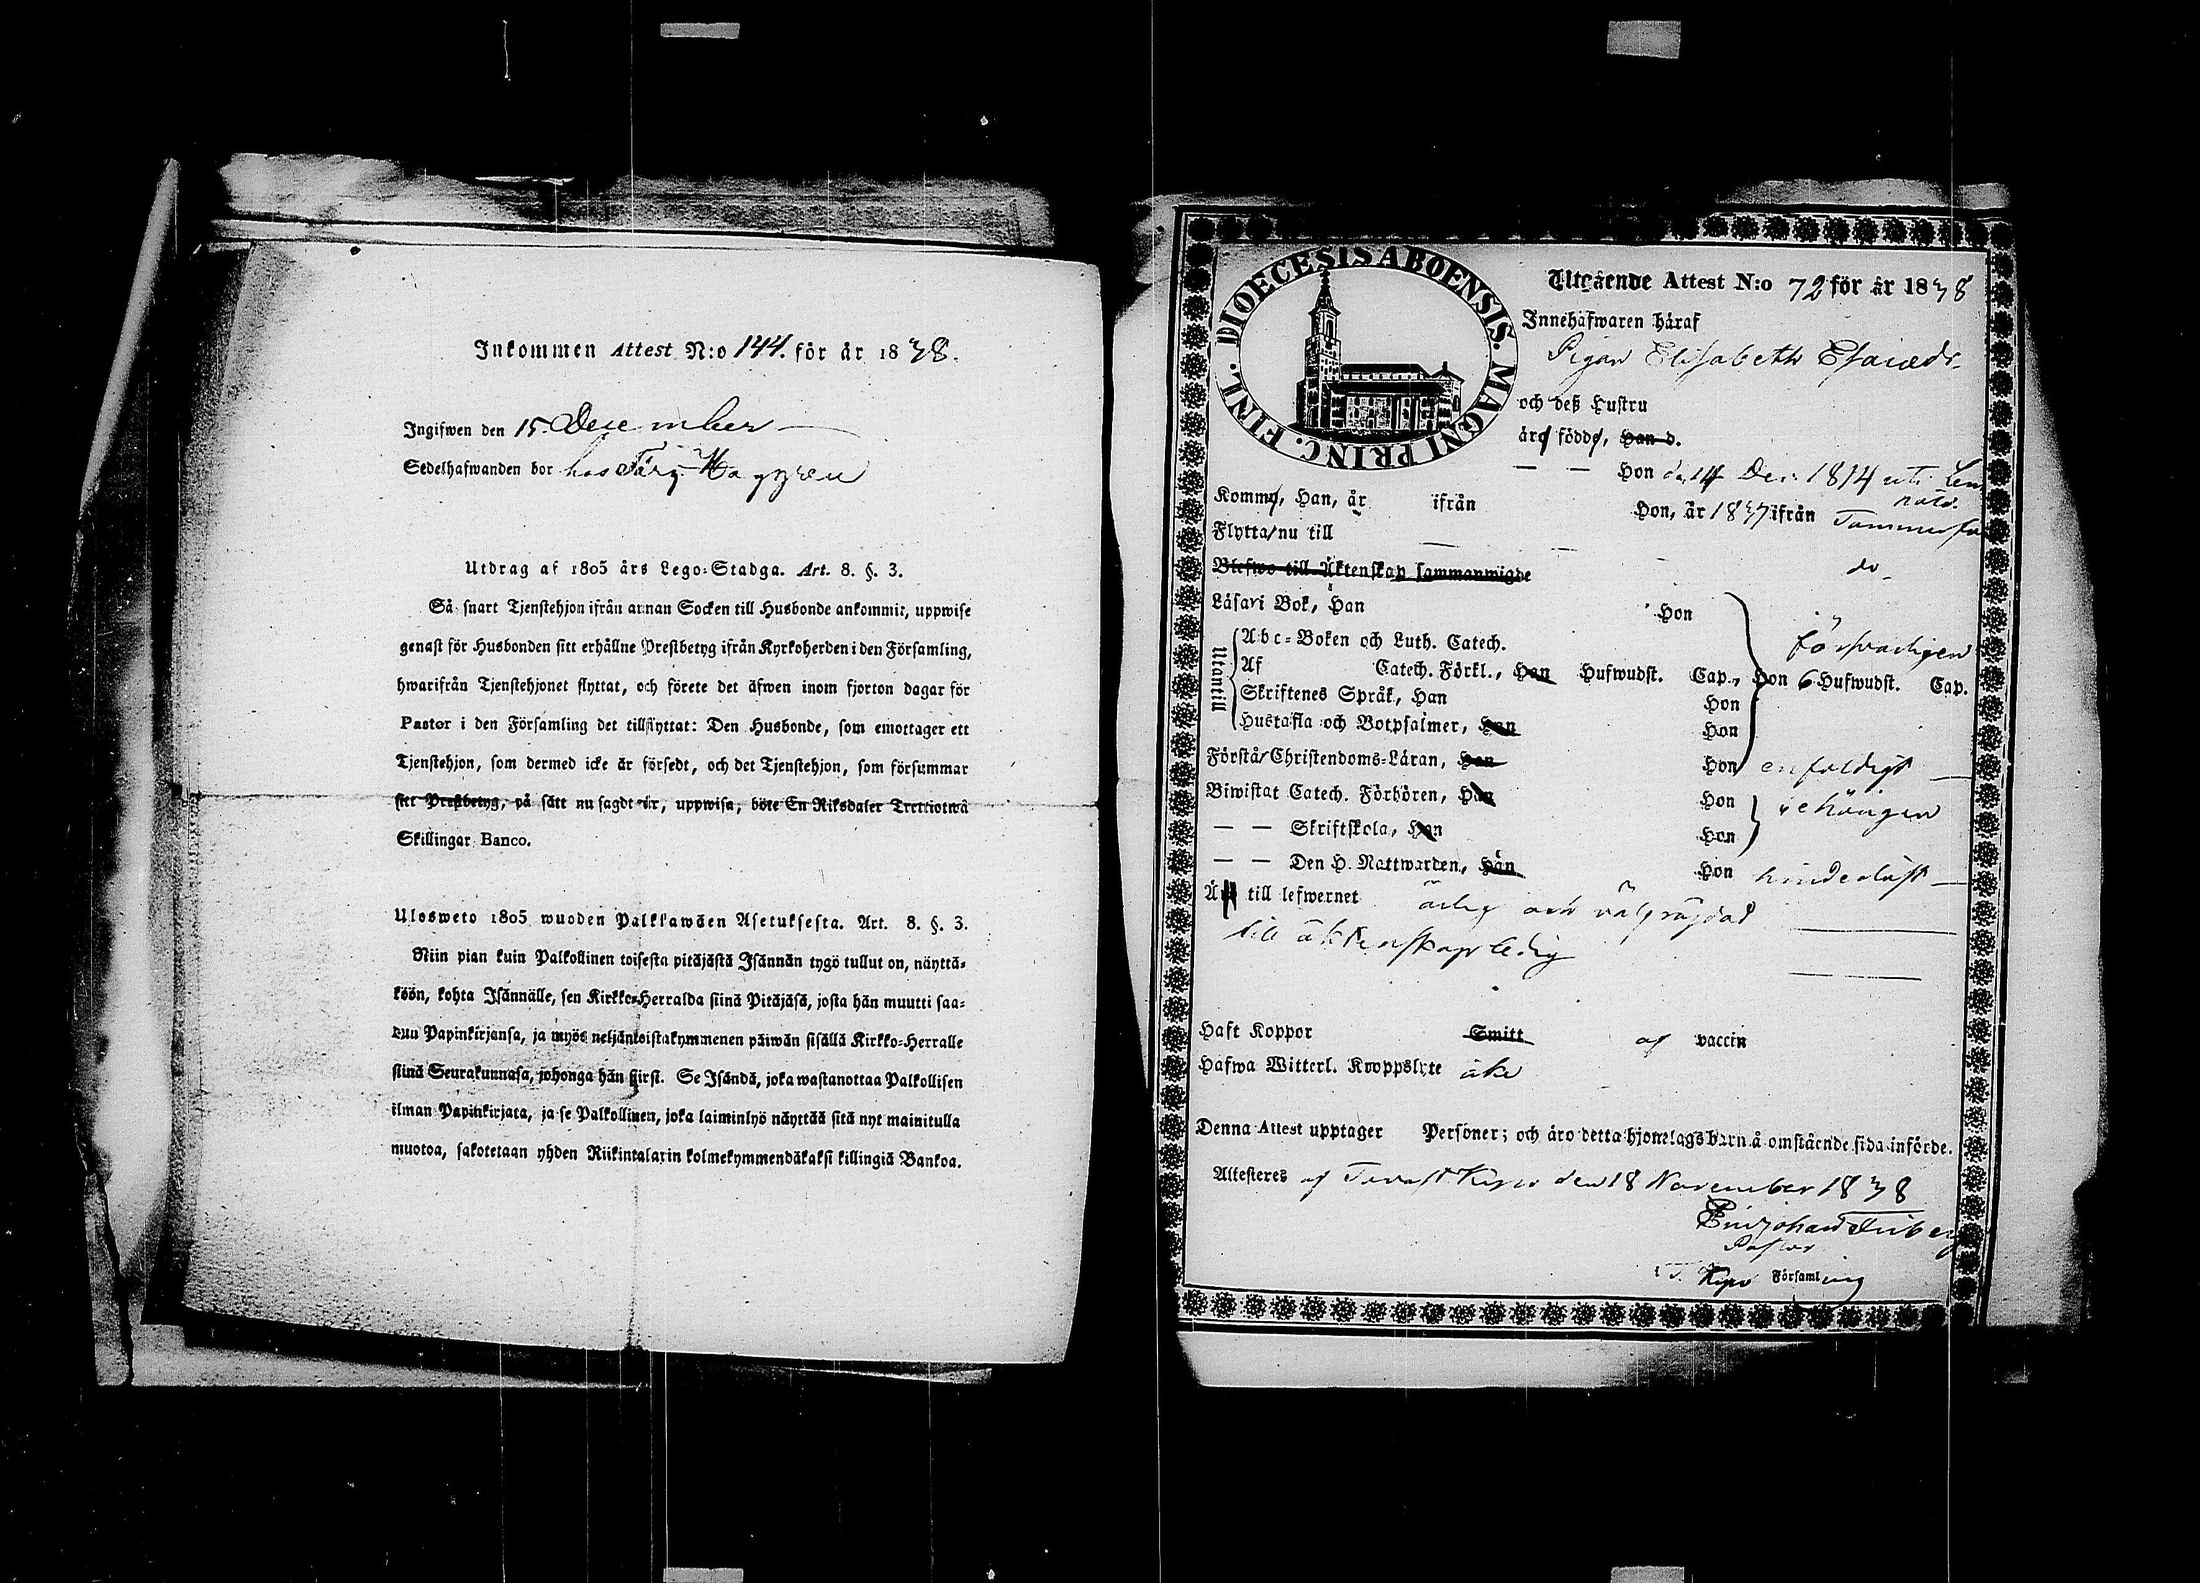 Inkommen Attest N:o 144. för år 1838.
Ingifwen den 15 December
Sedelhafwanden bor hos Färg. Haggren
Utdrag af 1805 års Lego-Stadga. Art. 8. §. 3.
Så snart Tjenstehjon ifrån annan Socken till Husbonde ankommit, uppwise
genast för Husbonden sitt erhållne Prestbetyg ifrån Kyrkoherden i den Församling,
hwarifrån Tjenstehjonet flyttat, och förete det äfwen inom fjorton dagar för
Pastor i den Församling det tillflyttat: Den Husbonde, som emottager ett
Tjenstehjon, som dermed icke är försedt, och det Tjenstehjon, som försummar
sitt Prestbetyg, på sätt nu sagdt är, uppwisa, böte En Riksdaler Trettiotwå
Skillingar Banco.
Ulosweto 1805 wuoden Palkkawäen Asetuksesta. Art. 8. §. 3.
Niin pian kuin Palkollinen toisesta pitäjästä Isännän tygö tullut on, näyttä-
köön, kohta Isännälle, sen Kirkko-Herralda siinä Pitäjäsä, josta hän muutti saa-
tun Papinkirjansa, ja myös neljäntoistakymmenen päiwän sisällä Kirkko-Herralle
siinä Seurakunnasa, johonga hän siirsi. Se Isändä, joka wastanottaa Palkollisen
ilman Papinkirjata, ja se Palkollinen, joka laiminlyö näyttää sitä nyt mainitulla
muotoa, sakotetaan yhden Riikintalarin kolmekymmendäkaksi killingiä Bankoa.
DIOECESIS ABOENSIS. MAGNI PRINC. FINL.
Utgående Attest N:o 72 för år 1838
Innehafwaren häraf
Pigan Elisabeth Esaiædr.
och deß Hustru
äro födde, Han d.
— — Hon d. 14 Dec: 1814 uti
Komme, Han, år ifrån Hon, år 1837 ifrån Tammerfors
Flytta nu till
do
Blefwo till Äktenskap sammanwigde
Läsa i Bok, Han Hon
Utantill
Abc-Boken och Luth. Catech. försvarligen
Af Catech. Förkl., Han Hufwudst. Cap., Hon 6 Hufwudst. Cap.
Skriftenes Språk, Han Hon
Hustafla och Botpsalmer, Han Hon
Förstå Christendoms-Läran, Han Hon enfaldigt
Biwistat Catech. Förhören, Han Hon behörigen
— — Skriftskola, Han Hon
— — Den H. Nattwarden, Han Hon hinderlöst
Är till lefwernet ärlig och välfrägdad
till äktenskap ledig
Haft Koppor Smitt af vaccin
Hafwa Witterl. Kroppslyte icke
Denna Attest upptager Personer; och äro detta hjonelags barn å omstående sida införde.
Attesteres af Tavastkyro den 18 November 1838
Johan Friberg
Pastor
i T. Kyro Församling